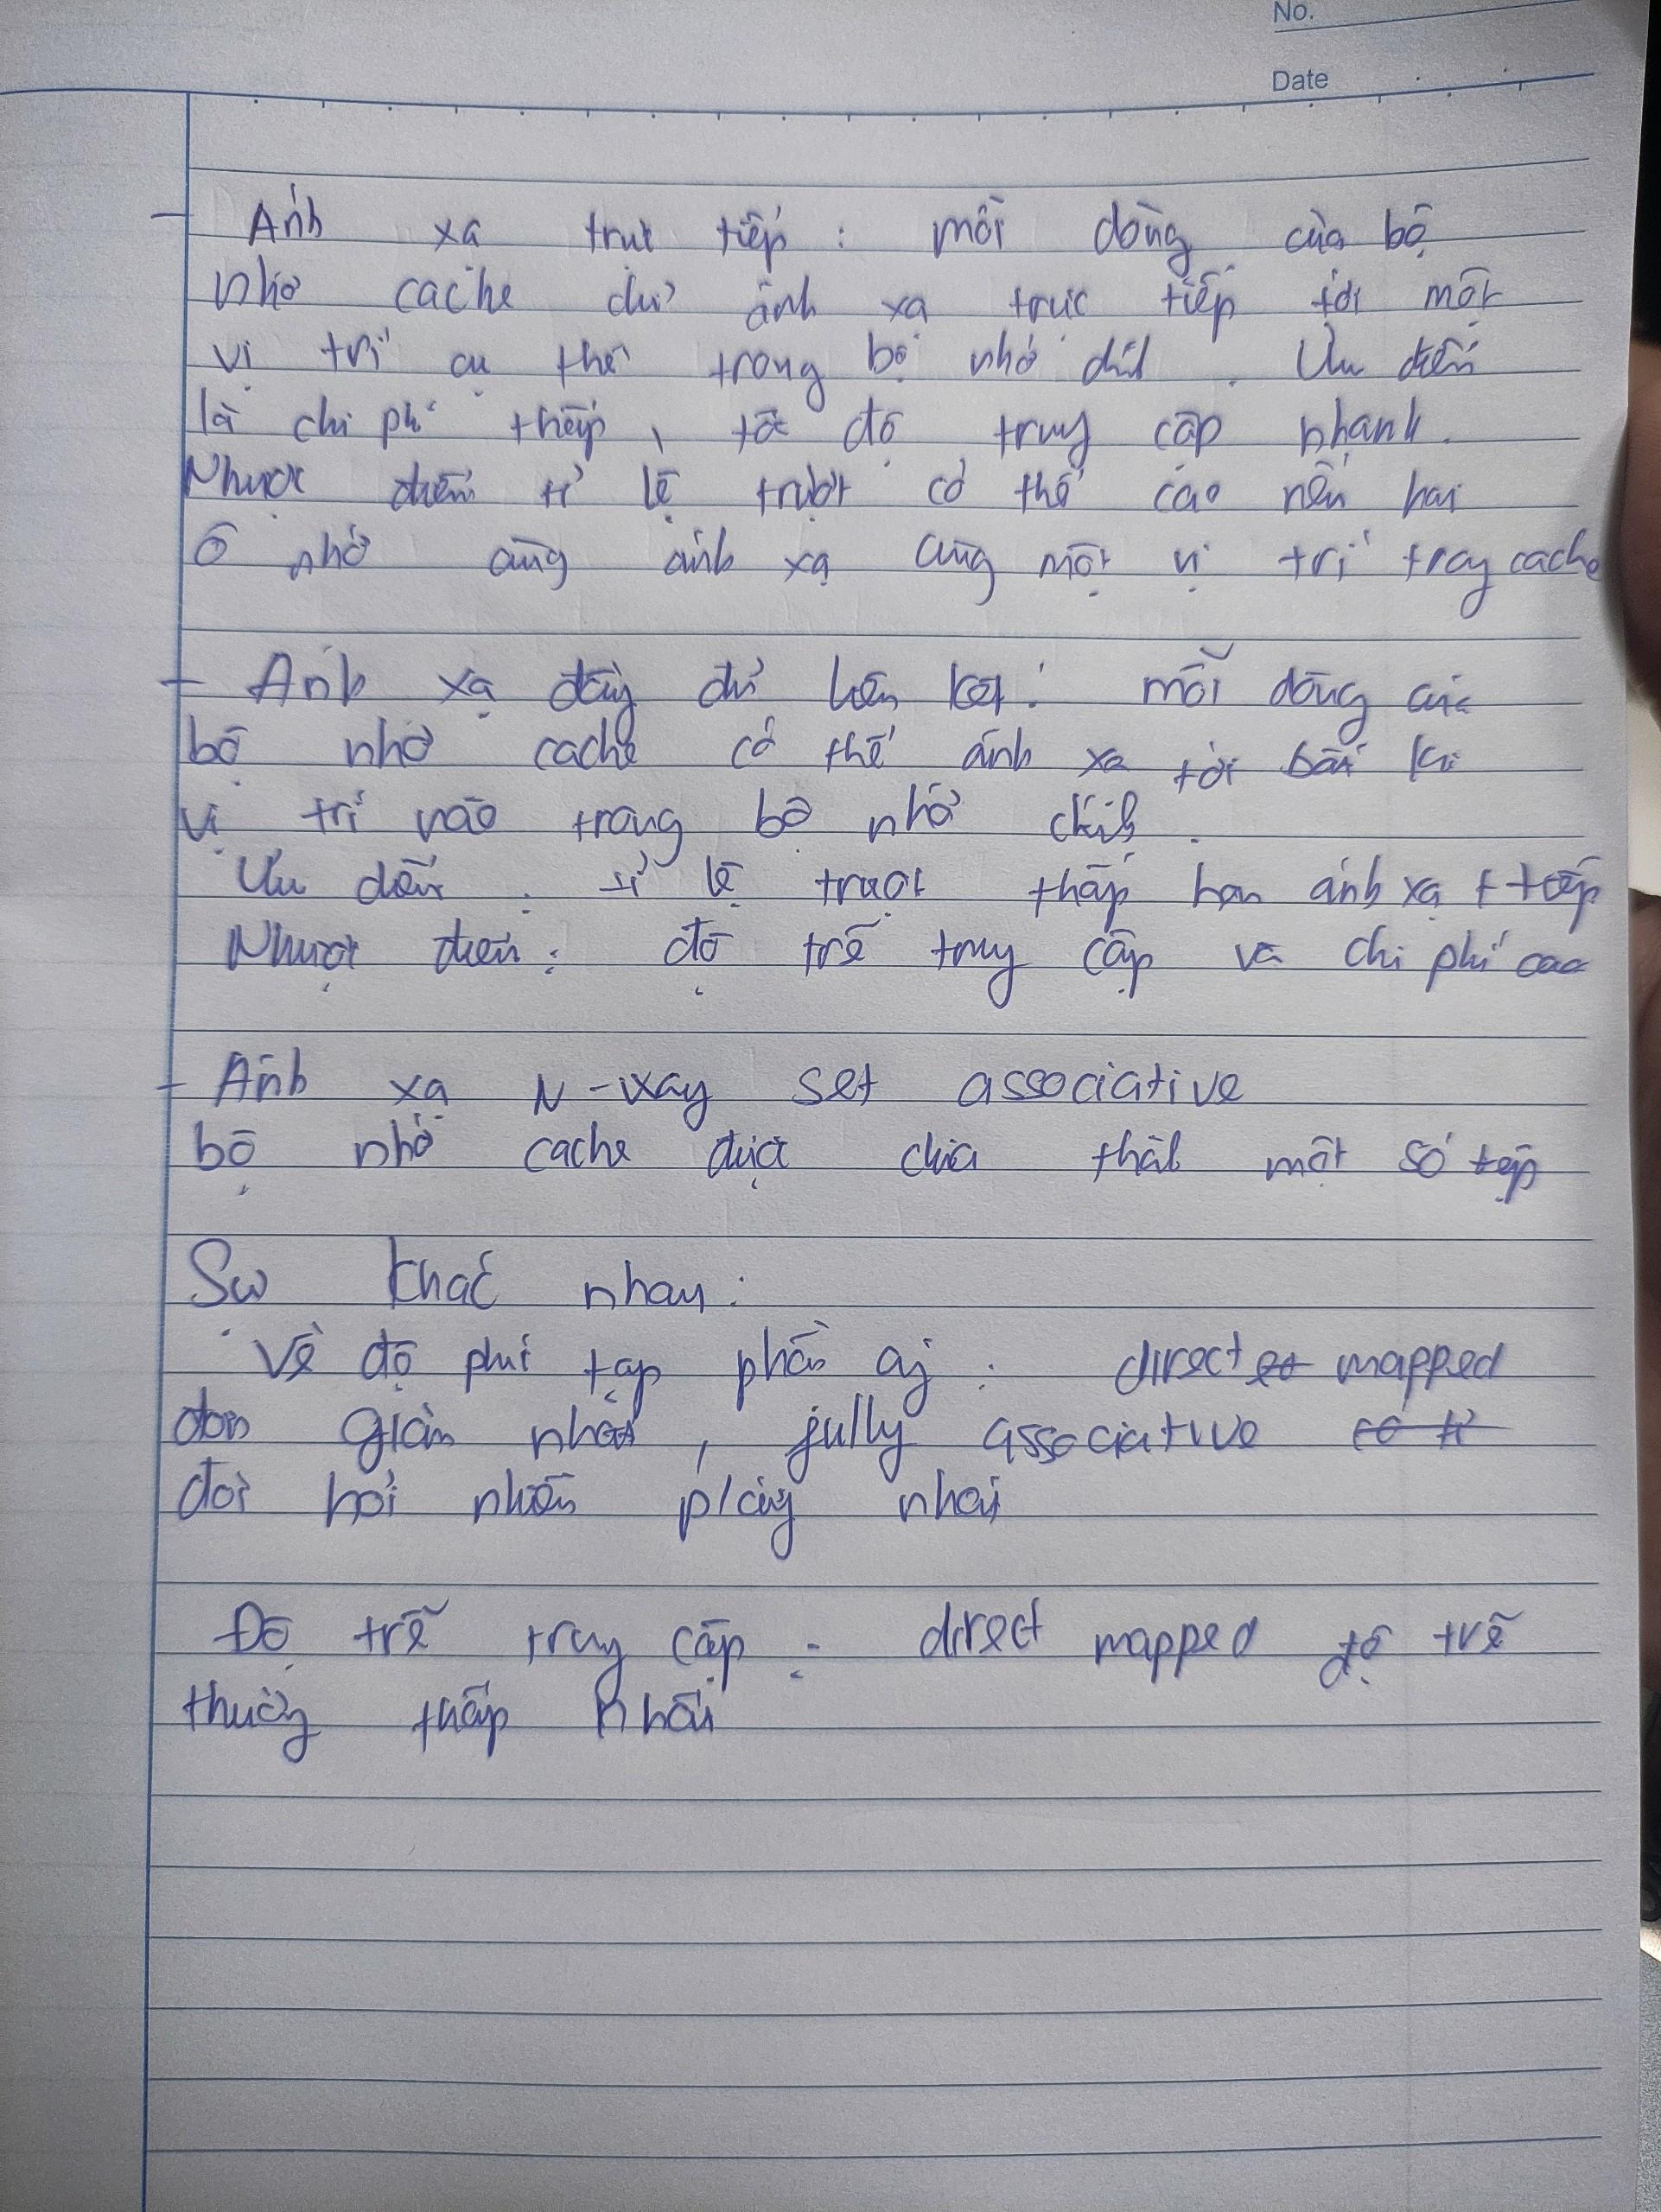 No.
Date
- Ánh xạ trực tiếp : mỗi dòng của bộ
nhớ cache chỉ ánh xạ trực tiếp tới một
vị trí cụ thể trong bộ nhớ chính . Ưu điểm
là chi phí thấp , tốc độ truy cập nhanh.
Nhược điểm tỉ lệ trượt có thể cao nếu hai
ô nhớ cùng ánh xạ cùng một vị trí trong cache
- Ánh xạ đầy đủ liên kết : mỗi dòng của
bộ nhớ cache có thể ánh xạ tới bất kì
vị trí nào trong bộ nhớ chính .
Ưu điểm : tỉ lệ trượt thấp hơn ánh xạ t tiếp
Nhược điểm : độ trễ truy cập và chi phí cao
- Ánh xạ N-way set associative
bộ nhớ cache được chia thành một số tệp
Sự khác nhau :
Về độ phức tạp phần cứng : direct mapped
đơn giản nhất , fully associative
đòi hỏi nhiều p/cứng nhất
Độ trễ truy cập : direct mapped độ trễ
thường thấp nhất